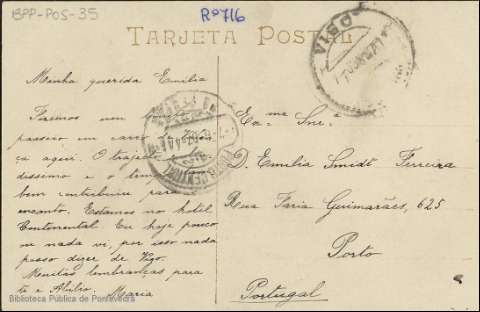 BPP-POS-35
Rº716
TARJETA POSTAL
VIGO
Minha querida Emilia
Fizemos um
passeio em carro
ça aqui. O trajecto
dissimo e o tempo
bem contribuiu para
encanto. Estamos no hotel
Continental. Eu hoje pouco
ou nada vi, por isso nada
posso dizer de Vigo.
Muitas lembranças para
te e Abilio. Maria
Exma Snra
D. Emilia Smidt Ferreira
Rua Faria Guimarães, 625
Porto
Portugal
Biblioteca Pública de Pontevedra